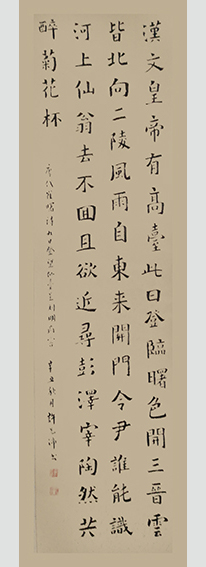 漢文皇帝有高臺此日登臨曙色開三晉雲
皆北向二陵風雨自東来關門令尹誰能識
河上仙翁去不回且欲近尋彭澤宰陶然共
醉菊花杯